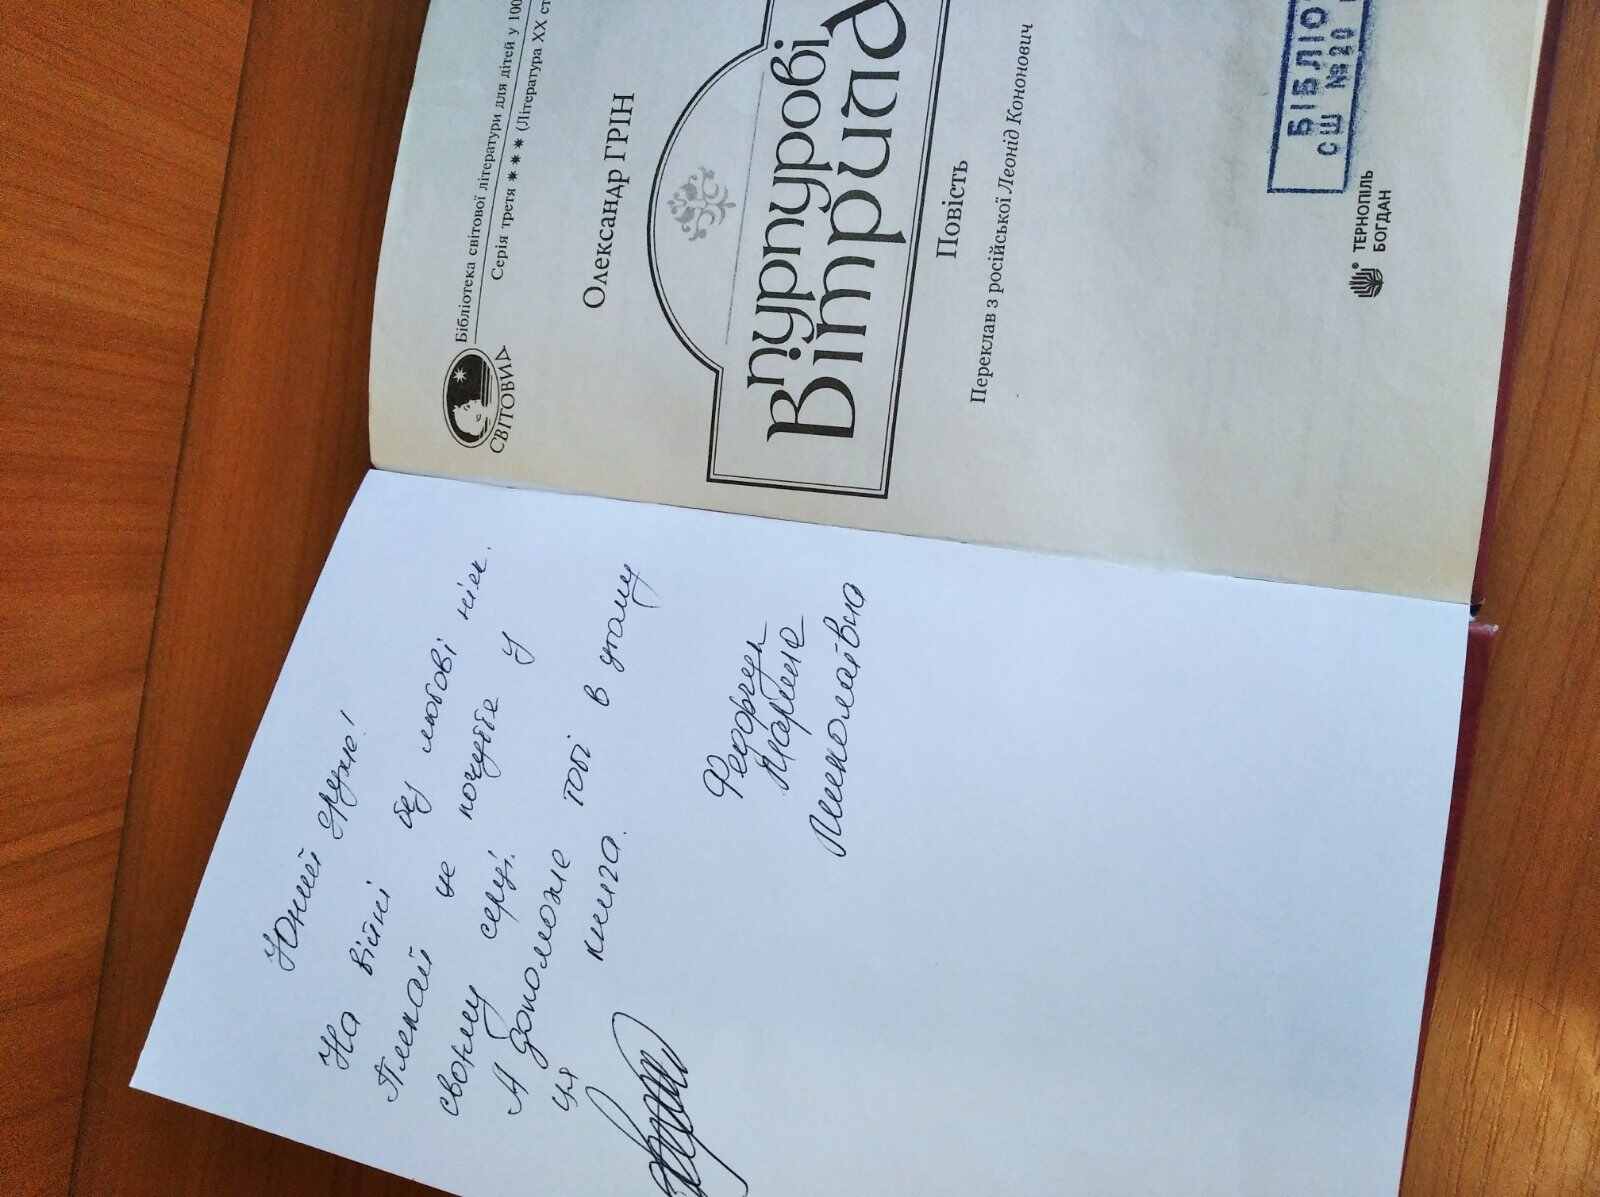 Юний друже!
На війні без любові ніяк.
Плекай це почуття у
своєму серці.
А допоможе тобі в цьому
ця книга.
Федорчук
Марина
Миколаївна
Бібліотека світової літератури для дітей у 100
Серія третя ✷ ✷ ✷ (Література XX ст
СВІТОВИД
Олександр ГРІН
Пурпурові
Вітрила
Повість
Переклав з російської Леонід Кононович
БІБЛІО
СШ №20
ТЕРНОПІЛЬ
БОГДАН